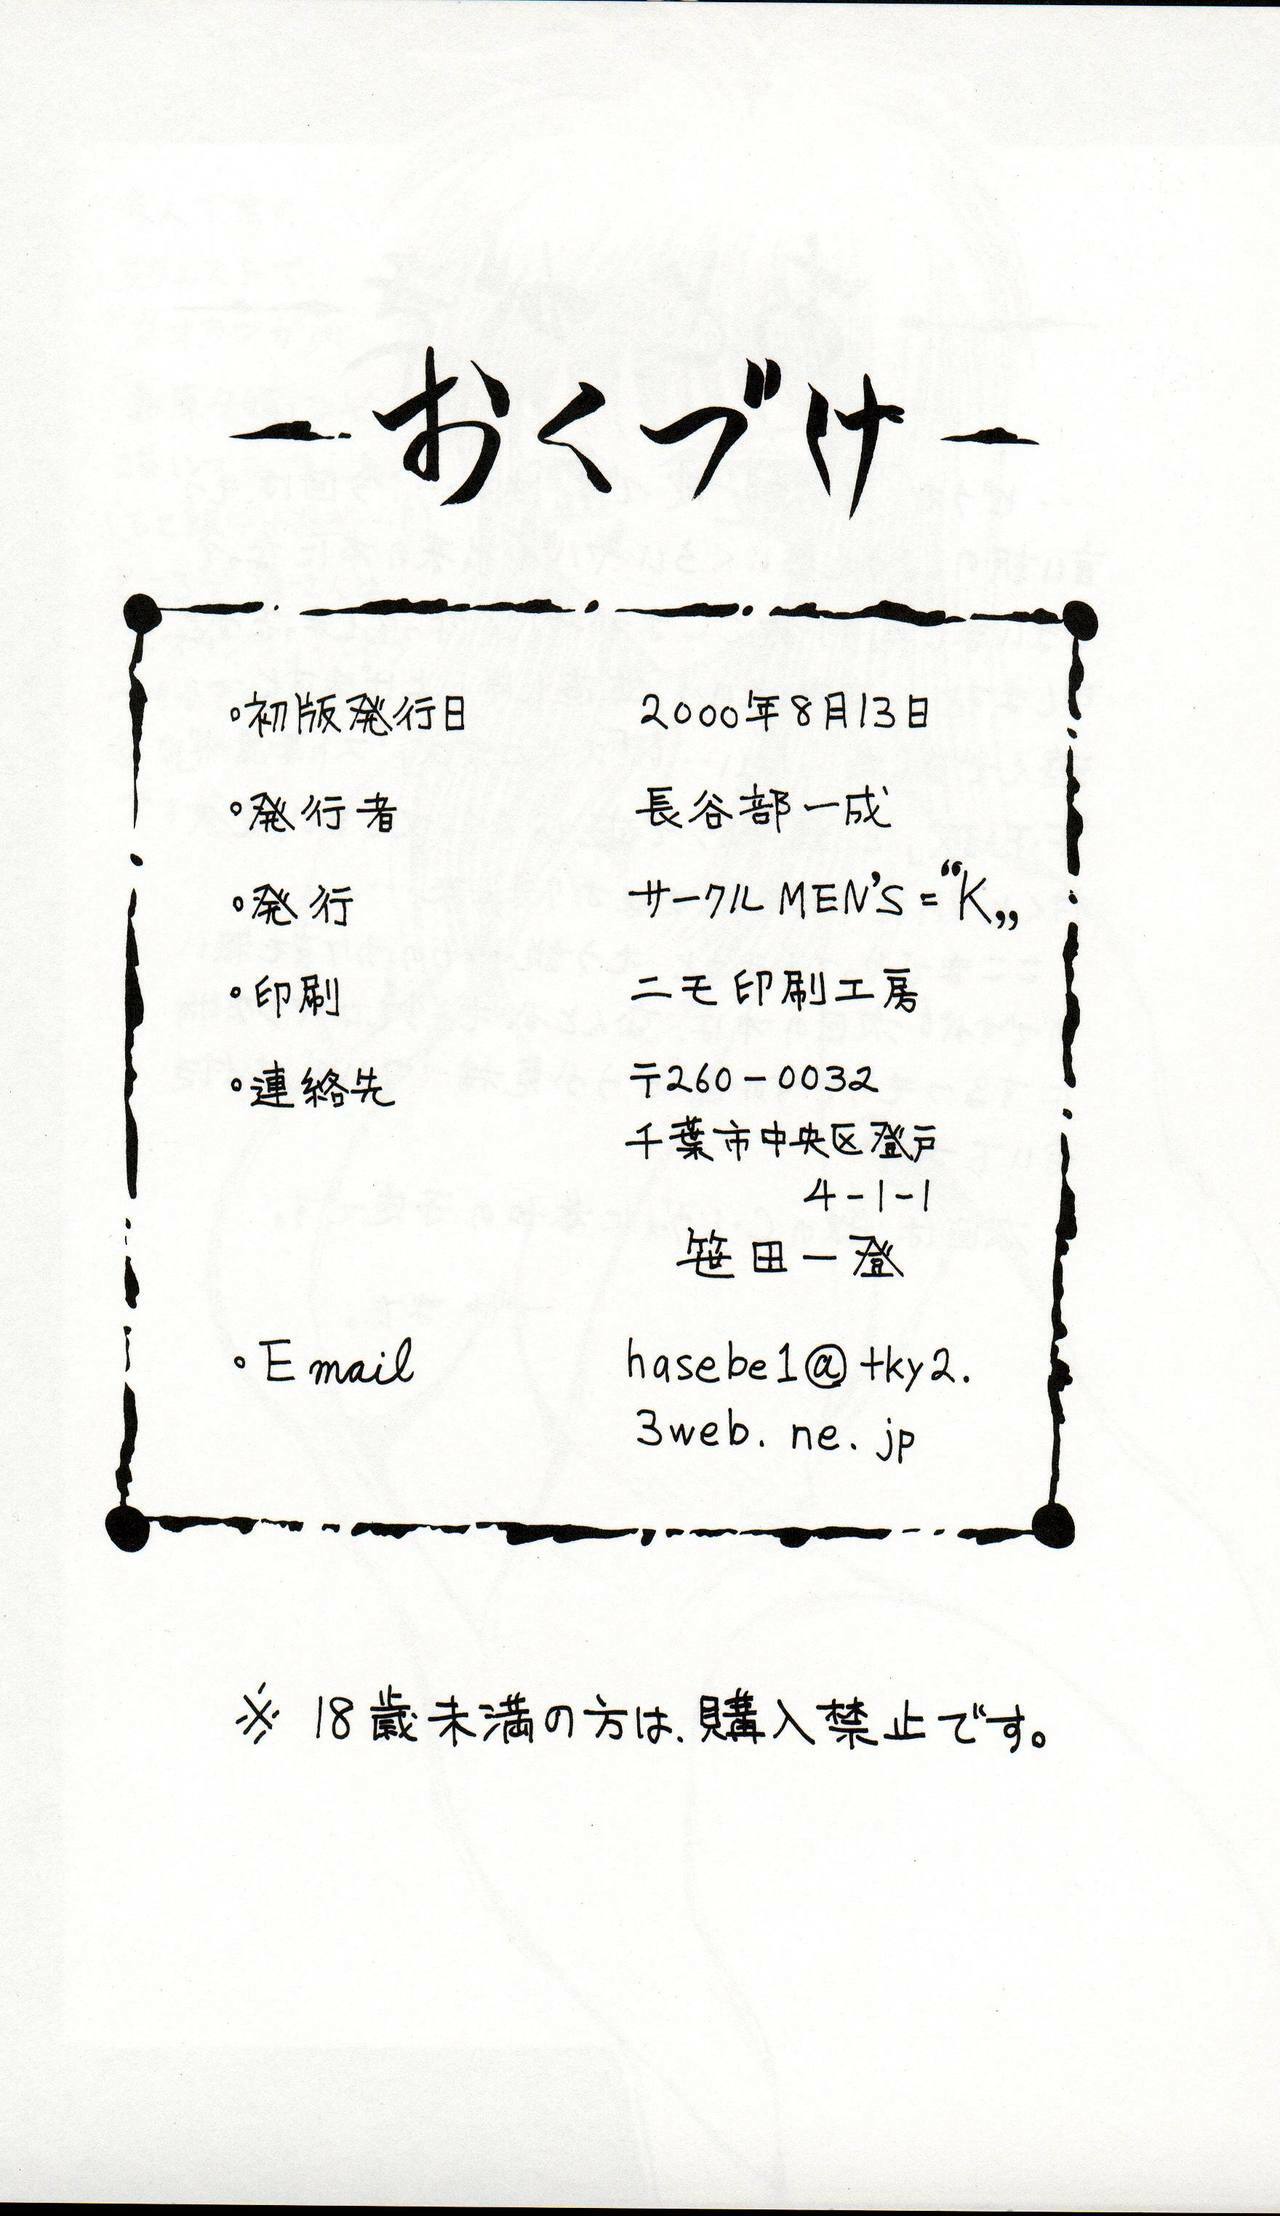 ーおくづけー
。初版発行日 2000年8月13日
。発行者 長谷部一成
。発行 サークルMEN'S="K„
。印刷 ニモ印刷工房
。連絡先 〒260-0032
千葉市中央区登戸
4-1-1
笹田一登
。Email hasebe1@tky2.
3web.ne.jp
※ 18歳未満の方は、購入禁止です。